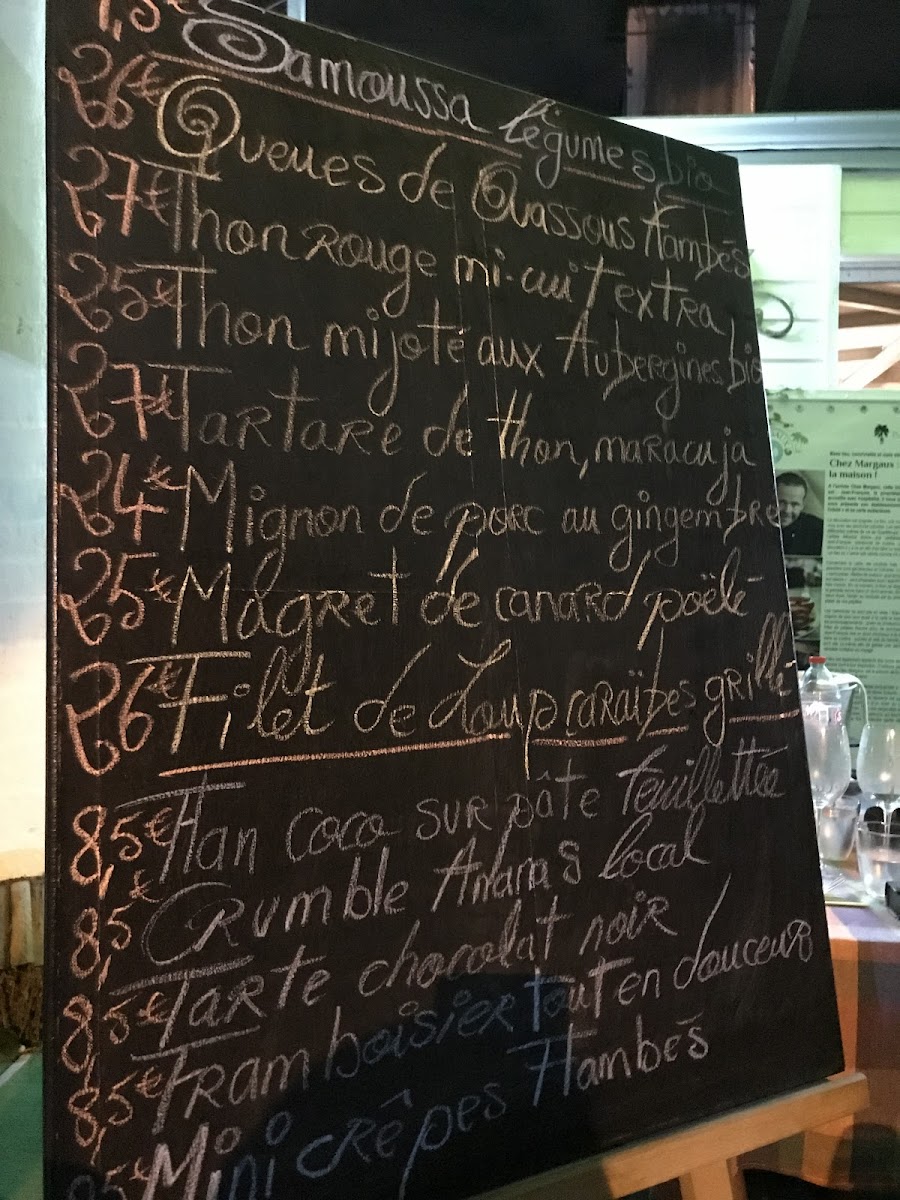 Samoussa légumes bio
26€ Queues de Ouassous flambés
27€ Thon Rouge mi-cuit extra
25€ Thon mijoté aux Aubergines bio
27€ Tartare de thon, maracuja
24€ Mignon de porc au gingembre
25€ Magret de canard poëlé
26€ Filet de Loup caraïbes grillé
8,5€ Flan coco sur pâte feuilletée
8,5€ Crumble Ananas local
8,5€ Tarte chocolat noir
8,5€ Framboisier tout en douceur
Mini crêpes flambés
Chez Margaux :
la maison !